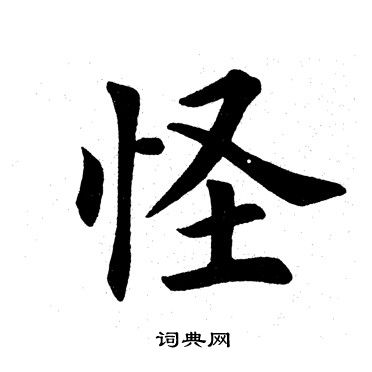 怪
词典网